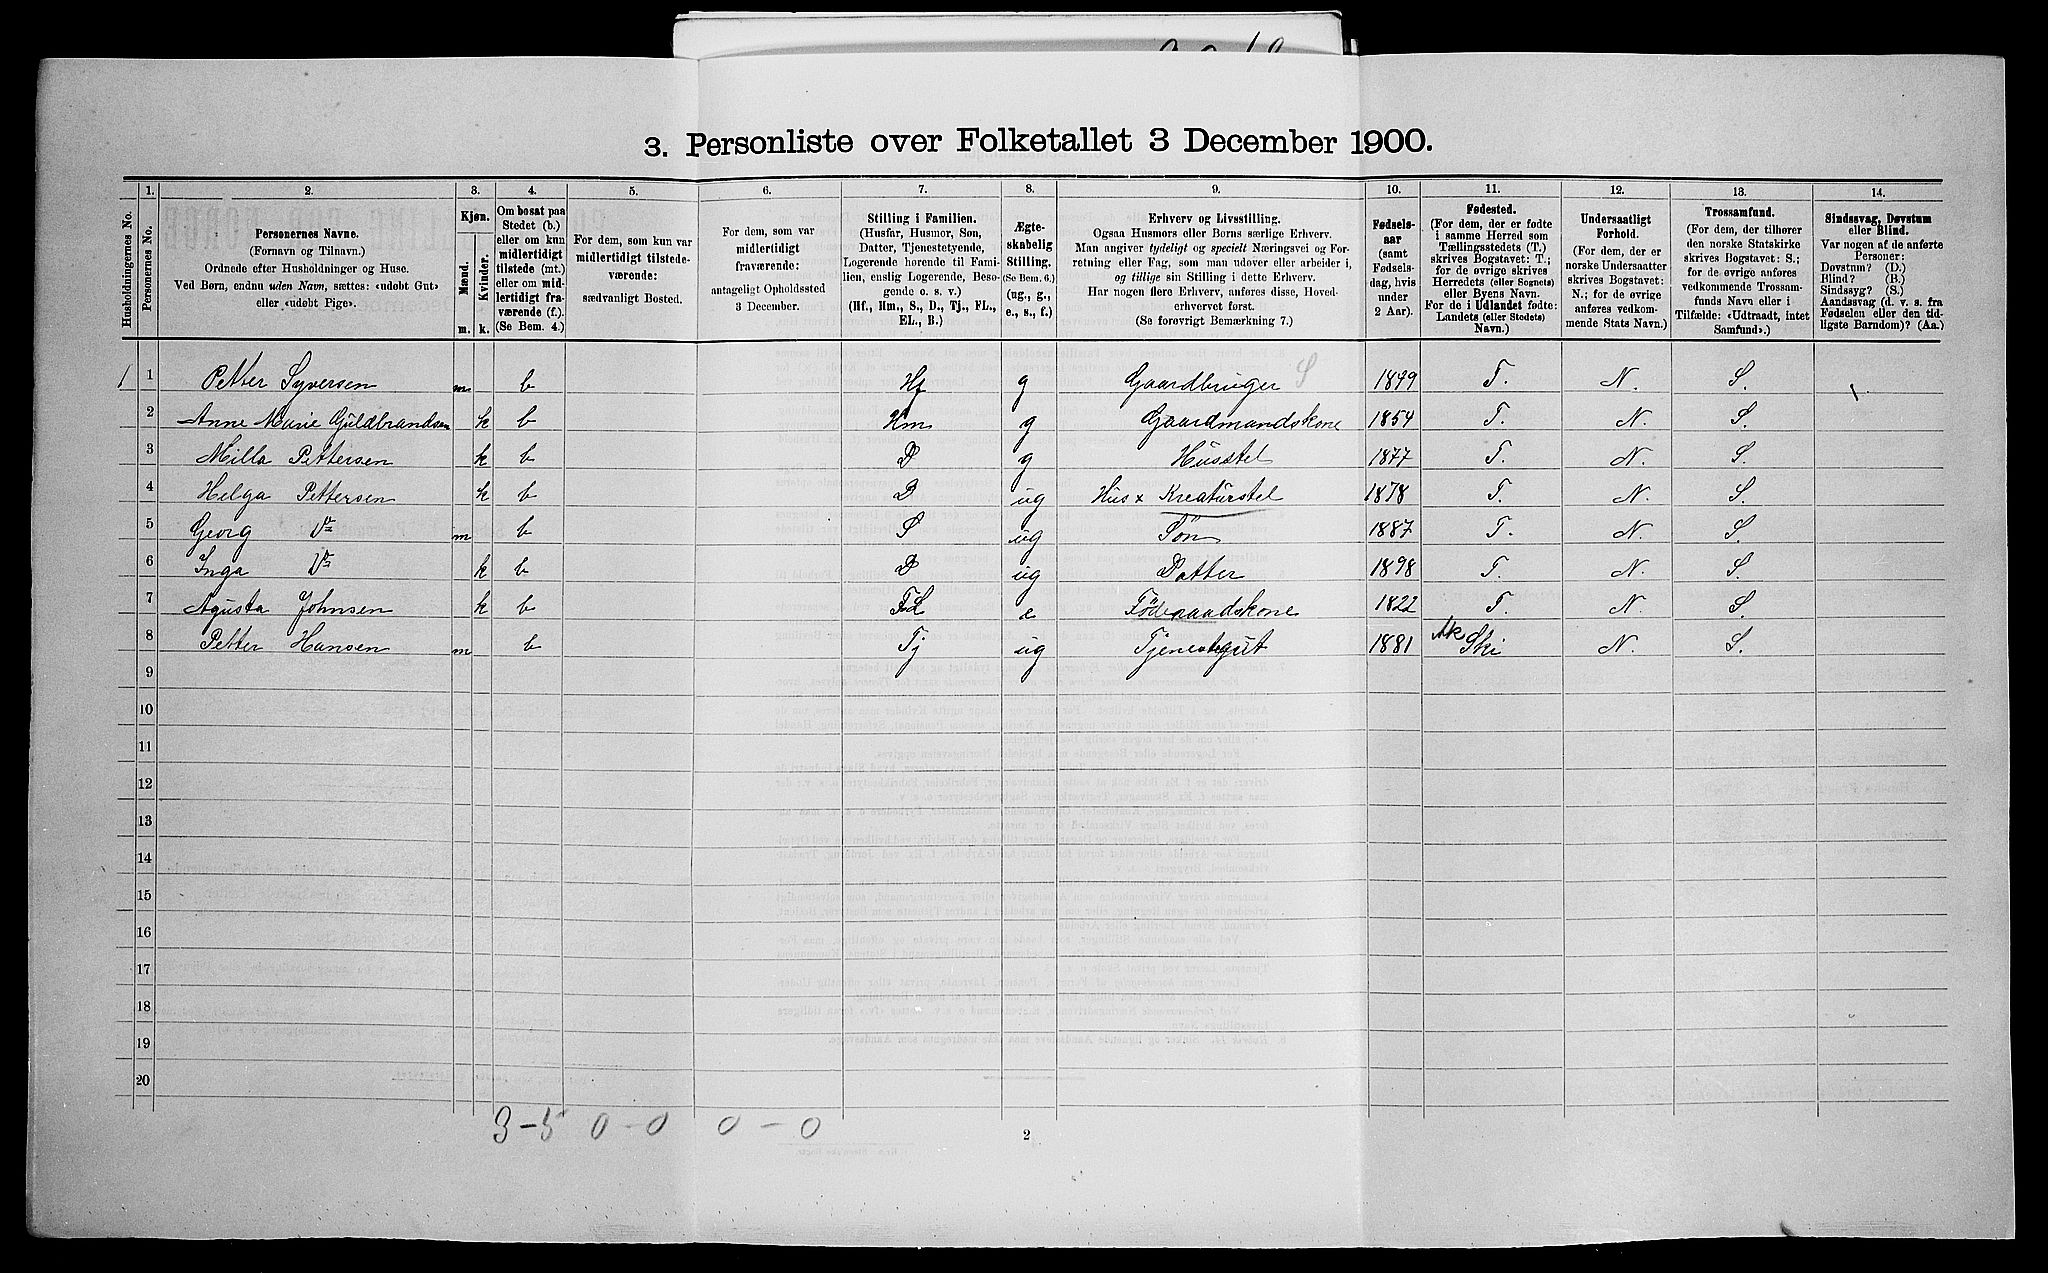 3. Personliste over Folketallet 3 December 1900.
1. 2. 3. 4. 5. 6. 7. 8. 9. 10. 11. 12. 13. 14.
Husholdningernes No.
Personernes No.
Personernes Navne.
(Fornavn og Tilnavn.)
Ordnede efter Husholdninger og Huse.
Ved Børn, endnu uden Navn, sættes: «udøbt Gut»
eller «udøbt Pige».
Kjøn.
Mænd.
Kvinder.
m. k.
Om bosat paa
Stedet (b.)
eller om kun
midlertidigt
tilstede (mt.)
eller om mid-
lertidigt fra-
værende (f.).
(Se Bem. 4.)
For dem, som kun var
midlertidigt tilstede-
værende:
sædvanligt Bosted.
For dem, som var
midlertidigt
fraværende:
antageligt Opholdssted
3 December.
Stilling i Familien.
(Husfar, Husmor, Søn,
Datter, Tjenestetyende,
Logerende hørende til Fami-
lien, enslig Logerende, Besø-
gende o. s. v.)
(Hf., Hm., S., D., Tj., FL.,
EL., B.)
Ægte-
skabelig
Stilling.
(Se Bem. 6.)
(ug., g.,
e., s., f.)
Erhverv og Livsstilling.
Ogsaa Husmors eller Børns særlige Erhverv.
Man angiver tydeligt og specielt Næringsvei og For-
retning eller Fag, som man udøver eller arbeider i,
og tillige sin Stilling i dette Erhverv.
Har nogen flere Erhverv, anføres disse, Hoved-
erhvervet først.
(Se forøvrigt Bemærkning 7.)
Fødsels-
aar
(samt
Fødsels-
dag, hvis
under
2 Aar).
Fødested.
(For dem, der er fødte
i samme Herred som
Tællingsstedets (T.)
skrives Bogstavet: T.;
for de øvrige skrives
Herredets (eller Sognets)
eller Byens Navn.
For de i Udlandet fødte:
Landets (eller Stedets)
Navn.)
Undersaatligt
Forhold.
(For dem, der er
norske Undersaatter
skrives Bogstavet:
N.; for de øvrige
anføres vedkom-
mende Stats Navn.)
Trossamfund.
(For dem, der tilhører
den norske Statskirke
skrives Bogstavet: S.;
for de øvrige anføres
vedkommende Trossam-
funds Navn eller i
Tilfælde: «Udtraadt, intet
Samfund».)
Sindssvag, Døvstum
eller Blind.
Var nogen af de anførte
Personer:
Døvstum? (D.)
Blind? (B.)
Sindssyg? (S.)
Aandssvag (d. v. s. fra
Fødselen eller den tid-
ligste Barndom)? (Aa.)
1 1 Petter Syversen m b Hf g Gaardbruger S 1839 T. N. S.
2 Anne Marie Guldbrandsen k b Hm g Gaardmandskone 1854 T. N. S.
3 Milla Pettersen k b D g Husstel 1877 T. N. S.
4 Helga Pettersen k b D ug Hus x Kreaturstel 1878 T. N. S.
5 Georg Do m b S ug Søn 1887 T. N. S.
6 Inga Do k b D ug Datter 1898 T. N. S.
7 Agusta Johnsen k b FL e Föderaadskone 1822 T. N. S.
8 Petter Hansen m b Tj ug Tjenestgut 1881 Ak Ski N. S.
9
10
11
12
13
14
15
16
17
18
19
20
3-5 0-0 0-0
2